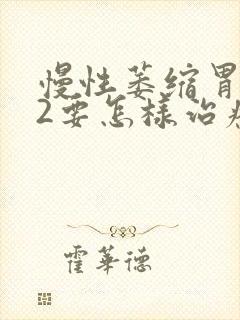 慢性萎缩胃
2要怎样治疗
霍華德